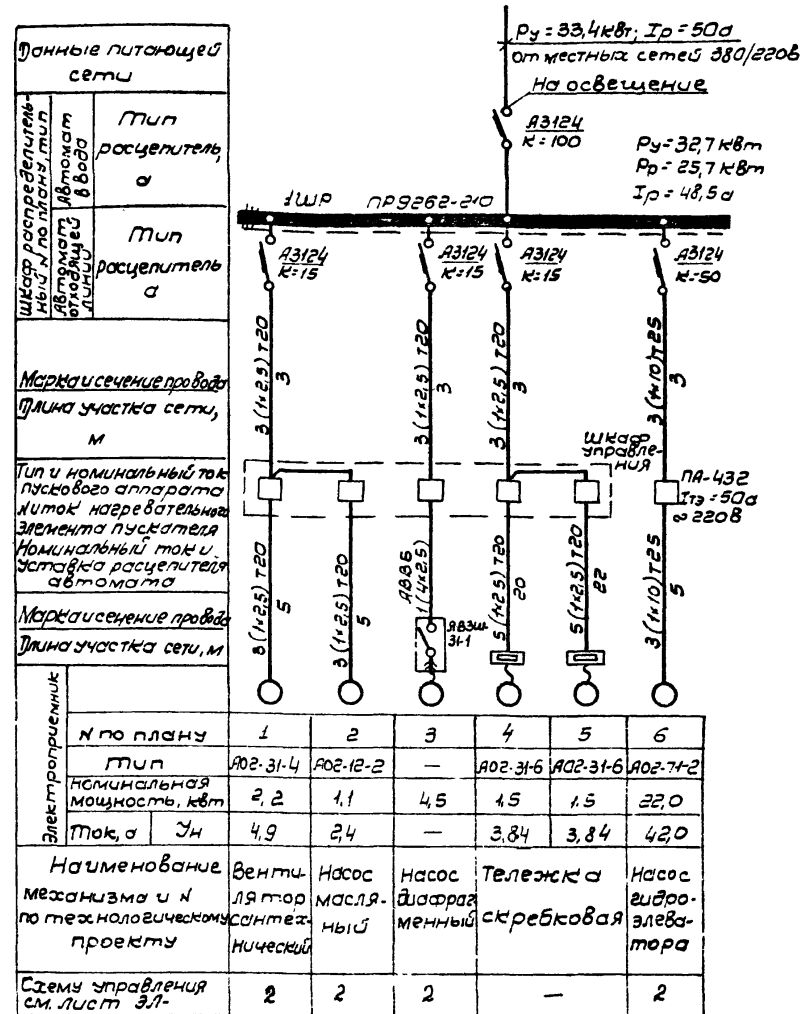 Данные питающей
сети
Ру = 33,4 квт; Iр = 50а
от местных сетей 380/220в
На освещение
Шкаф распределитель-
ный № по плану, тип
Автомат
ввода
Тип
расцепитель,
а
А3124
К = 100
Ру = 32,7 квт
Рр = 25,7 квт
Iр = 48,5 а
1ШР
ПР9262-210
Автомат
отходящей
линии
Тип
расцепитель
а
А3124
К=15
А3124
К=15
А3124
К=15
А3124
К=50
Марка и сечение провода
Длина участка сети,
м
3 (1×2,5) Т20
3
3 (1×2,5) Т20
3
3 (1×2,5) Т20
3
3 (1×10) Т25
3
Шкаф
управле-
ния
Тип и номинальный ток
пускового аппарата
и ток нагревательного
элемента пускателя
Номинальный ток и
уставка расцепителя
автомата
ПА-432
Iтэ = 50а
~ 220в
Марка и сечение провода
Длина участка сети, м
3 (1×2,5) Т20
5
3 (1×2,5) Т20
5
АВВБ
1 (4×2,5)
ЯВЗШ
31-1
5 (1×2,5) Т20
20
5 (1×2,5) Т20
22
3 (1×10) Т25
5
Электроприемник
№ по плану 1 2 3 4 5 6
Тип АО2-31-4 АО2-12-2 — АО2-31-6 АО2-31-6 АО2-71-2
Номинальная
мощность, квт 2,2 1,1 4,5 1,5 1,5 22,0
Ток, а Iн 4,9 2,4 — 3,84 3,84 42,0
Наименование
механизма и №
по технологическому
проекту
Венти-
лятор
сантех-
нический
Насос
масля-
ный
Насос
диафраг
менный
Тележка
скребковая
Насос
гидро-
элева-
тора
Схему управления
см. лист ЭЛ- 2 2 2 — 2